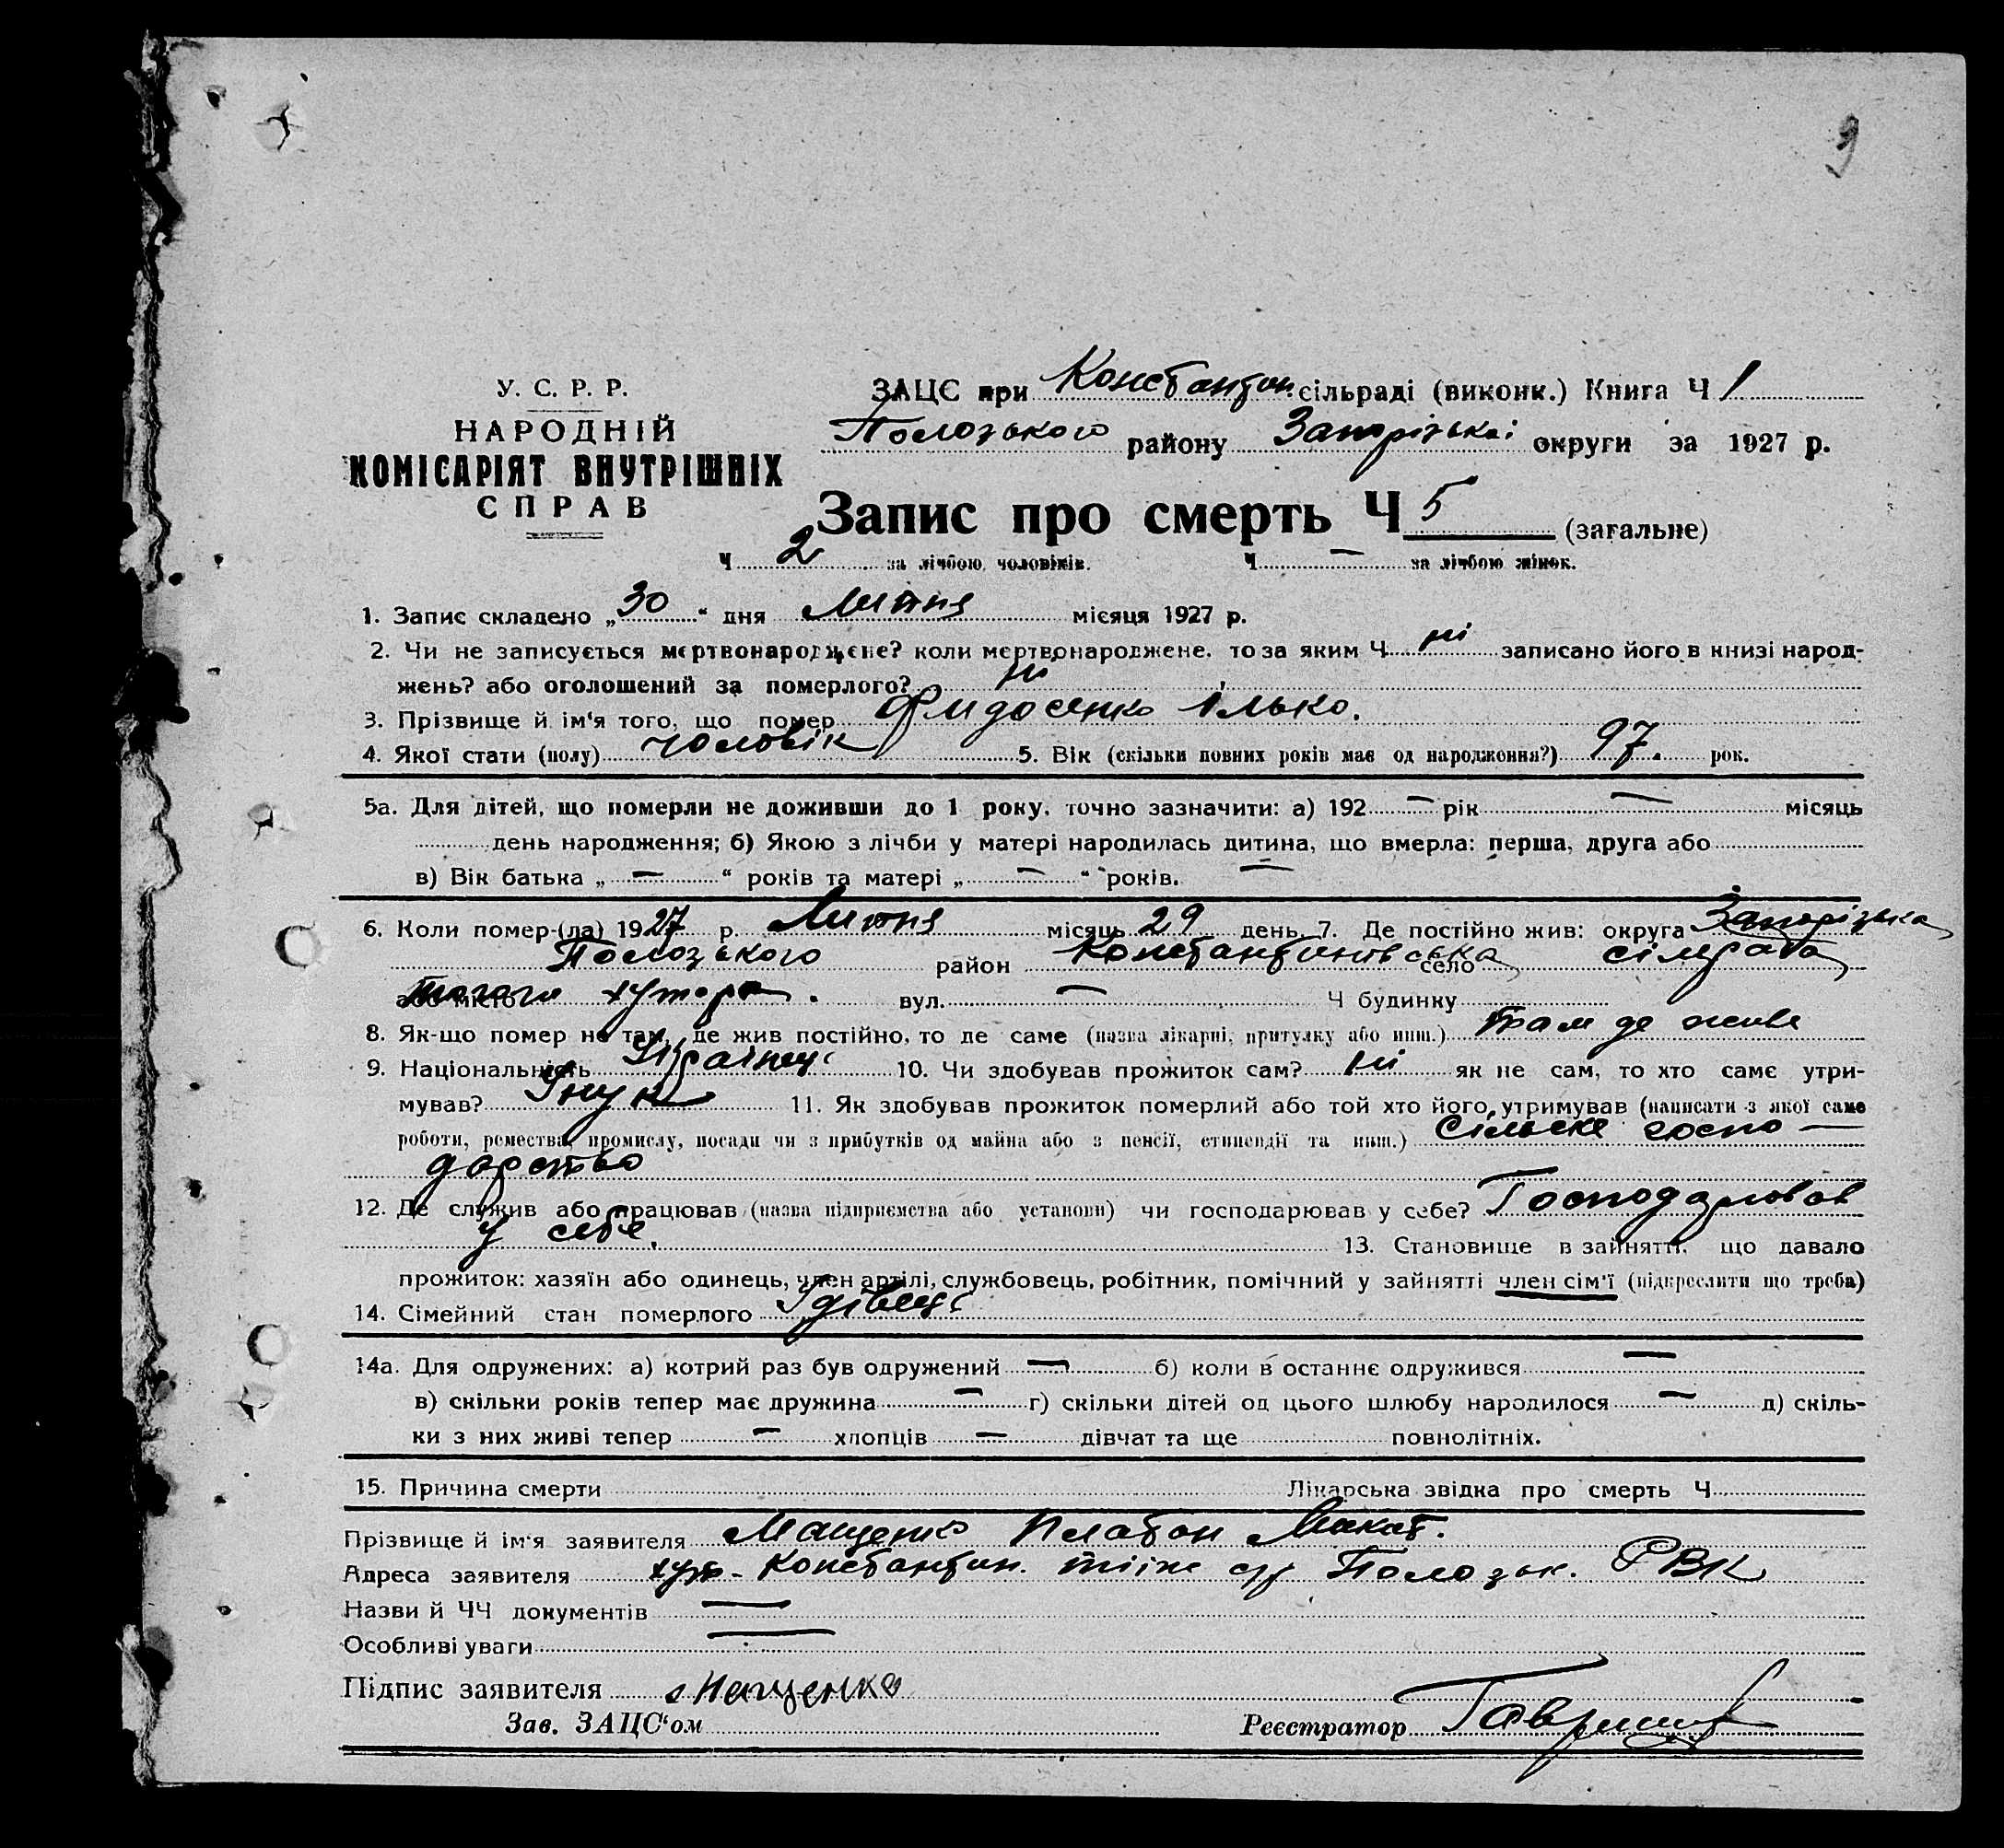 9
У. С. Р. Р.
НАРОДНІЙ
КОМІСАРІЯТ ВНУТРІШНІХ
СПРАВ
ЗАЦС при Константин. сільраді (виконк.) Книга Ч 1
Полозького району Запорізькоі округи за 1927 р.
Запис про смерть Ч 5 (загальне)
Ч 2 за лічбою чоловіків. Ч — за лічбою жінок.
1. Запис складено „30“ дня Липня місяця 1927 р.
2. Чи не записується мертвонароджене? коли мертвонароджене, то за яким Ч ні записано його в книзі народ-
жень? або оголошений за померлого? ні
3. Прізвище й ім'я того, що помер Ілько.
4. Якої стати (полу) чоловік 5. Вік (скільки повних років має од народження?) 97. рок.
5а. Для дітей, що померли не доживши до 1 року, точно зазначити: а) 192 — рік — місяць
день народження; б) Якою з лічби у матері народилась дитина, що вмерла: перша, друга або
в) Вік батька „ — “ років та матері „ — “ років. —
6. Коли помер-(ла) 1927 р. Липня місяць 29 день 7. Де постійно жив: округа Запорізька
Полозького район Константиновська село сільрада
або місто хутора. вул. — Ч будинку
8. Як-що помер не там, де жив постійно, то де саме (назва лікарні, притулку або инш.) Там де живе
9. Національність Украінець 10. Чи здобував прожиток сам? ні як не сам, то хто саме утри-
мував? Унук 11. Як здобував прожиток померлий або той хто його утримував (написати з якої саме
роботи, ремества, промислу, посади чи з прибутків од майна або з пенсії, стипендії та инш.) Сільске госпо-
дарство
12. Де служив або працював (назва підприємства або установи) чи господарював у себе? Господарював
у себе. 13. Становище в зайнятті, що давало
прожиток: хазяїн або одинець, член артілі, службовець, робітник, помічний у зайнятті член сім'ї (підкреслити що треба)
14. Сімейний стан померлого Удівець
14а. Для одружених: а) котрий раз був одружений — б) коли в останнє одружився —
в) скільки років тепер має дружина — г) скільки дітей од цього шлюбу народилося — д) скіль-
ки з них живі тепер — хлопців — дівчат та ще повнолітніх.
15. Причина смерти Лікарська звідка про смерть Ч
Прізвище й ім'я заявителя Мащенко Платон
Адреса заявителя хут. Константин. тієі ж с/р Полозьк. РВК
Назви й ЧЧ документів —
Особливі уваги —
Підпис заявителя
Зав. ЗАЦС'ом Реєстратор